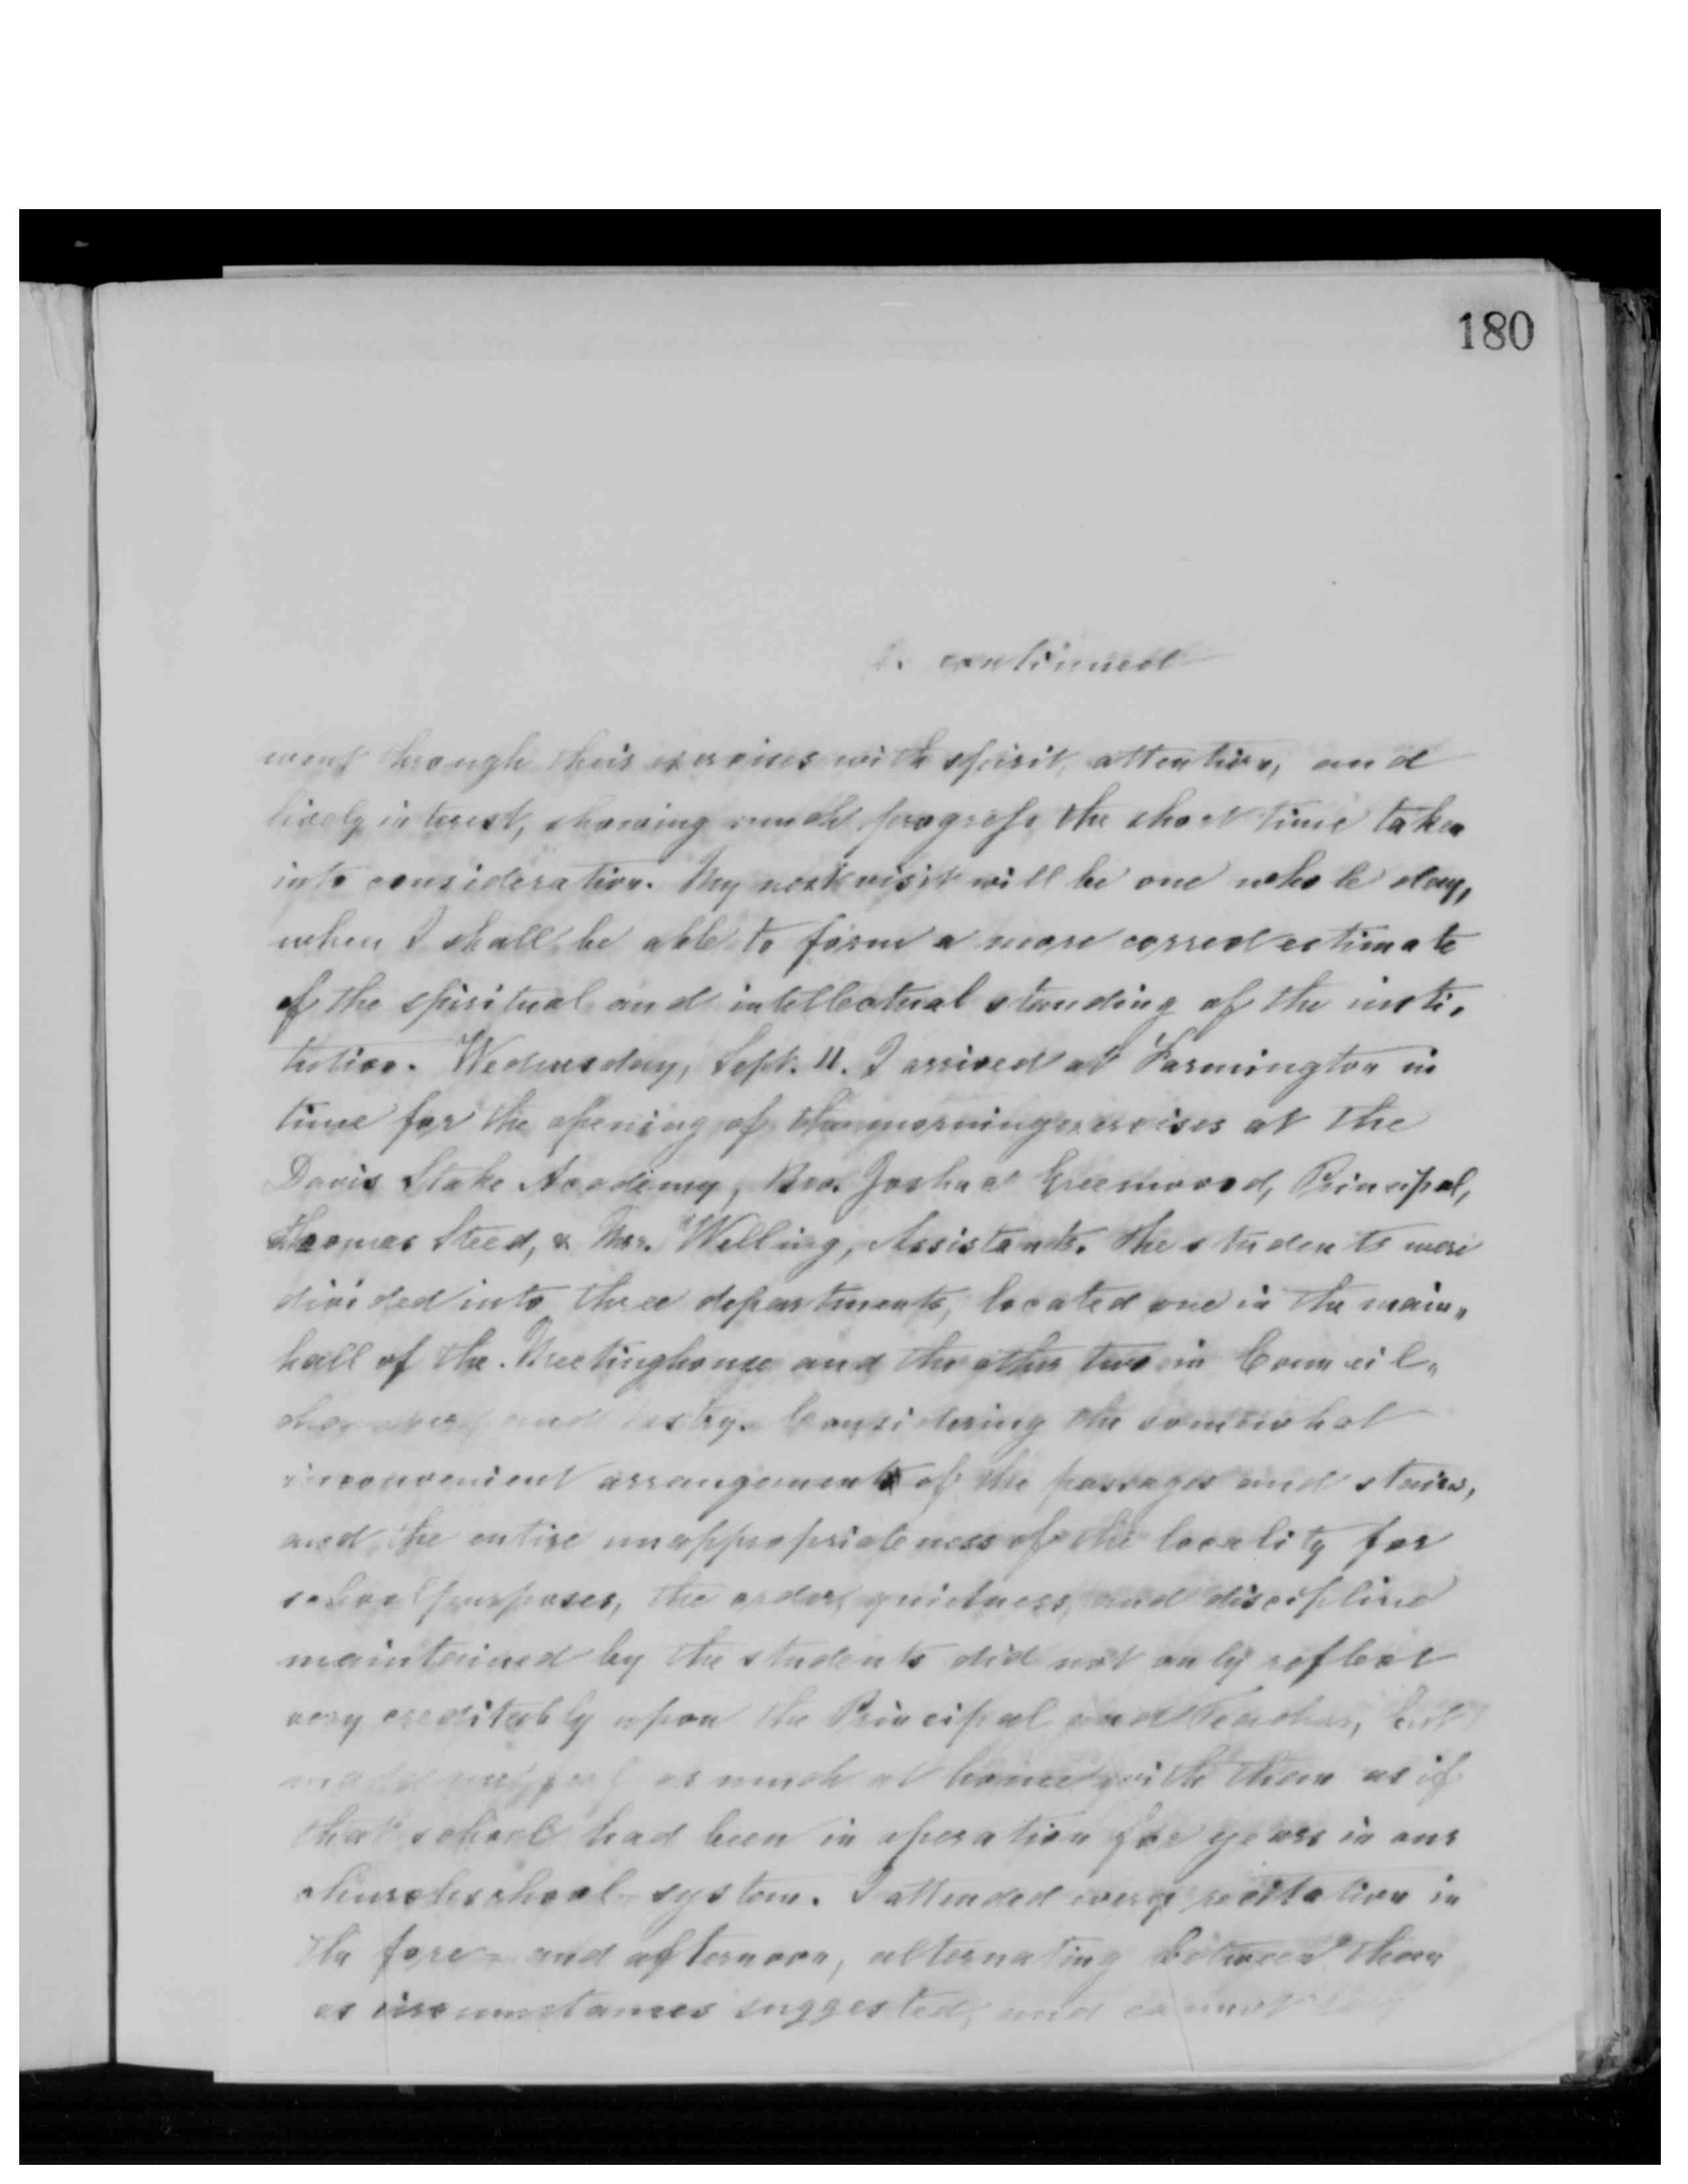 180
continued
went through their exercises with spirit, attention, and
lively interest, showing much progress the short time taken
into consideration. My next visit will be one whole day,
when I shall be able to form a more correct estimate
of the spiritual and intellectual standing of the insti-
tution. Wednesday, Sept. 11. I arrived at Farmington in
time for the opening of the morning exercises at the
Davis Stake Academy, Bro. Joshua Greenwood, Principal,
Thomas Steed, & Mrs. Welling, Assistants. The students were
divided into three departments, located one in the main-
hall of the Meetinghouse and the other two in Council-
chamber and vestry. Considering the somewhat
inconvenient arrangements of the passages and stairs,
and the entire unappropriateness of the locality for
school purposes, the order, quietness, and discipline
maintained by the students did not only reflect
very creditably upon the Principal and Teachers, but
made me feel as much at home with them as if
that school had been in operation for years in our
churchschool-system. I attended every recitation in
the fore- and afternoon, alternating between them
as circumstances suggested, and cannot